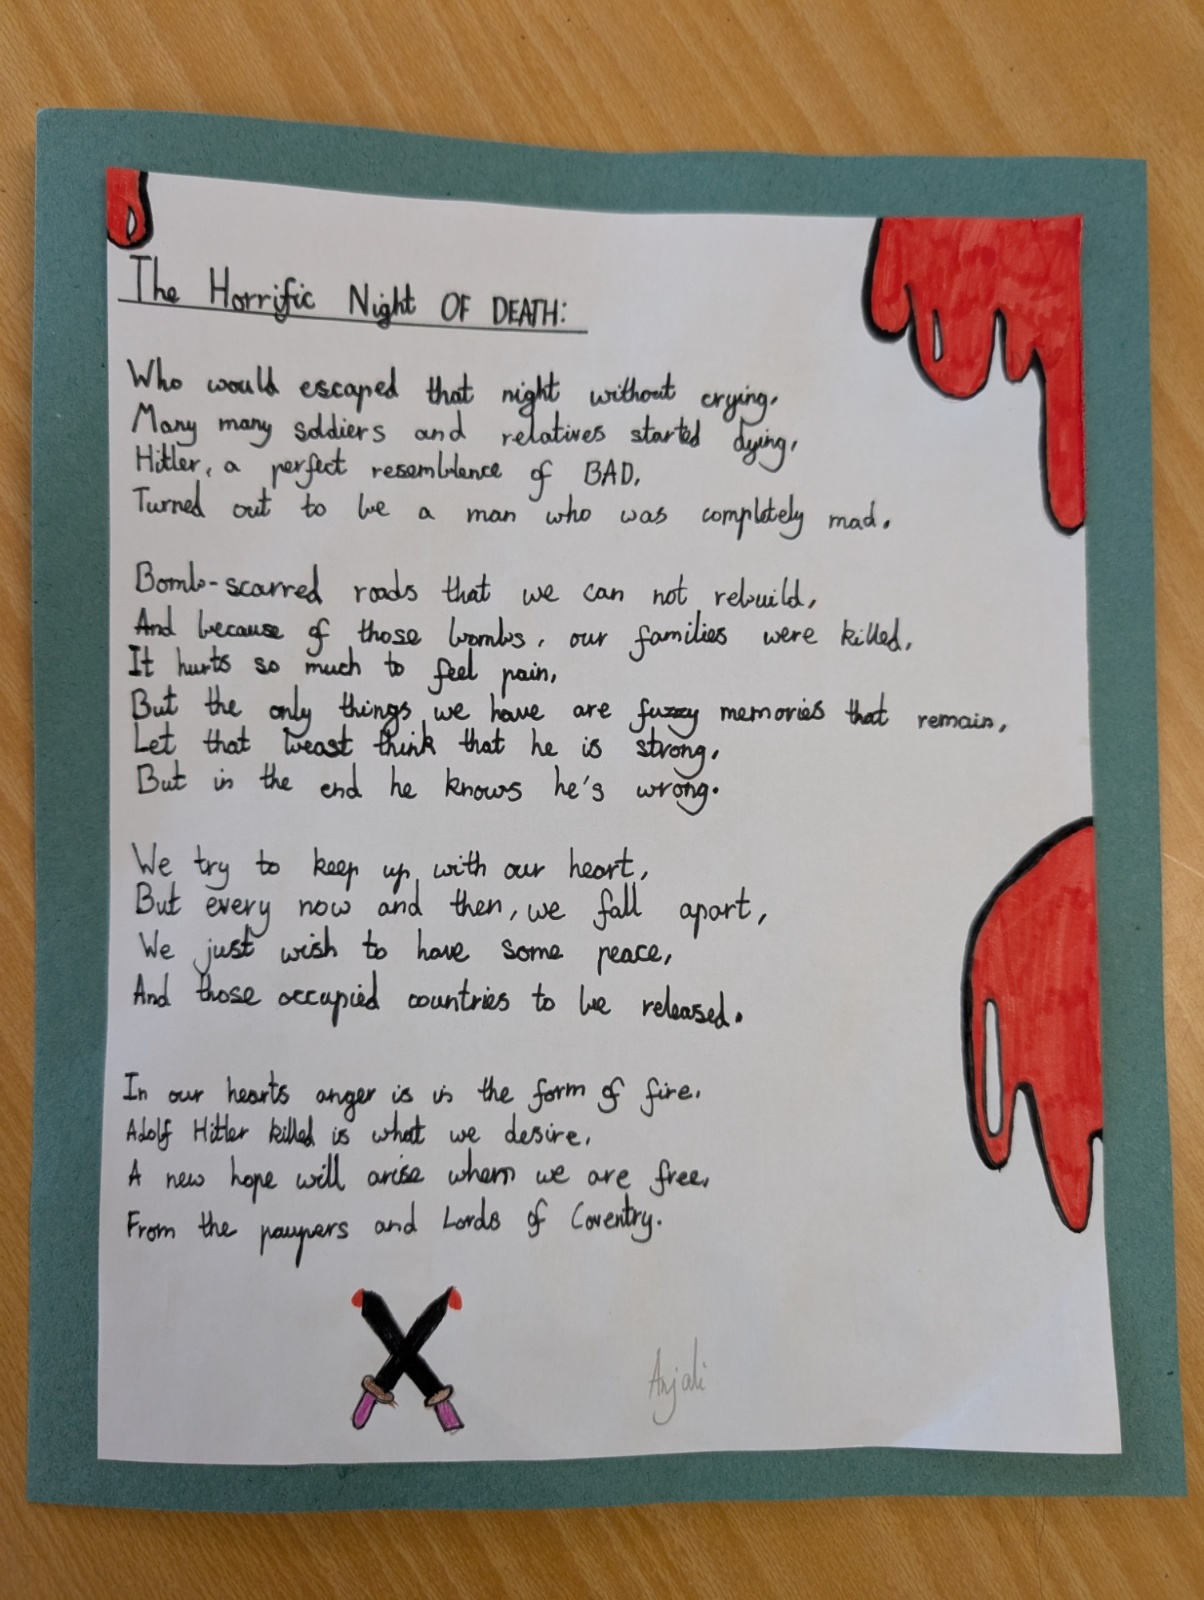 The Horrific Night OF DEATH:
Who would escaped that night without crying,
Many many soldiers and relatives started dying,
Hitler, a perfect resemblence of BAD,
Turned out to be a man who was completely mad.
Bomb-scarred roads that we can not rebuild,
And because of those bombs, our families were killed,
It hurts so much to feel pain,
But the only things we have are fuzzy memories that remain,
Let that beast think that he is strong,
But in the end he knows he's wrong.
We try to keep up with our heart,
But every now and then, we fall apart,
We just wish to have some peace,
And those occupied countries to be released.
In our hearts anger is in the form of fire,
Adolf Hitler killed is what we desire,
A new hope will arise when we are free,
From the paupers and Lords of Coventry.
Anjali